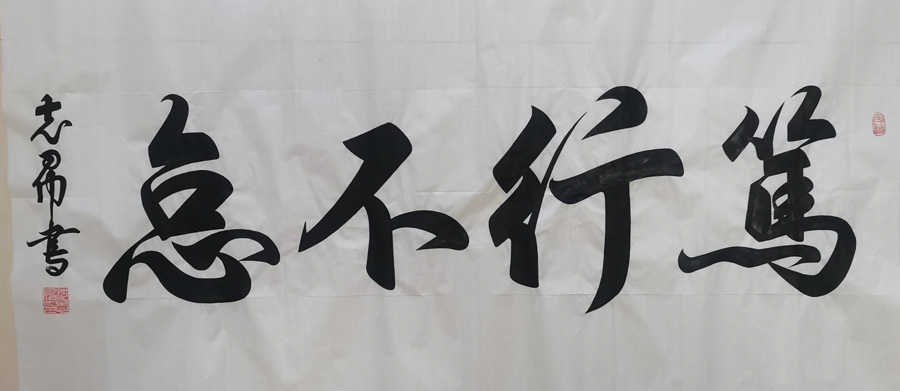 篤行不怠
志昂書